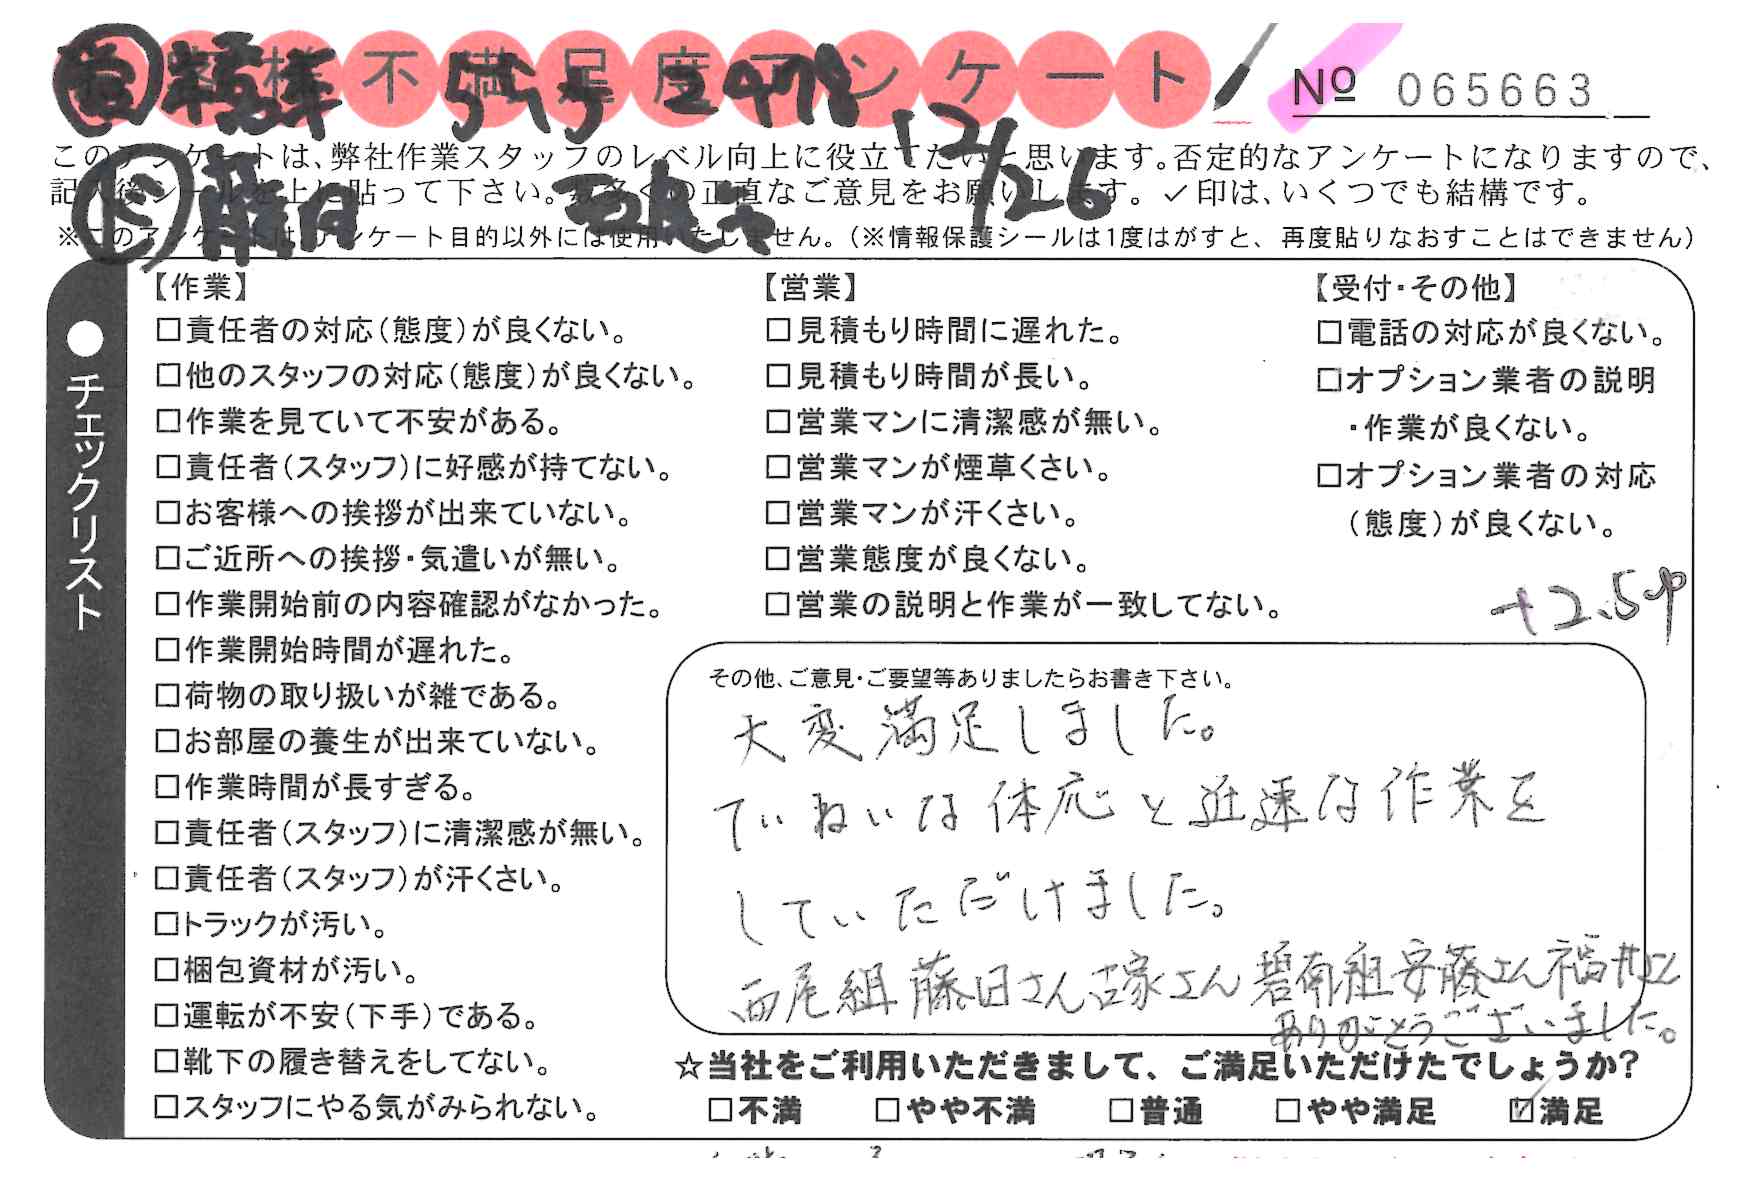 お客様不満足度アンケート
№ 065663
545 2478
12/26
このアンケートは、弊社作業スタッフのレベル向上に役立てたいと思います。否定的なアンケートになりますので、
記入後シールを上に貼って下さい。数多くの正直なご意見をお願いします。✓印は、いくつでも結構です。
※このアンケートは、アンケート目的以外には使用いたしません。（※情報保護シールは1度はがすと、再度貼りなおすことはできません）
●チェックリスト
【作業】
□責任者の対応（態度）が良くない。
□他のスタッフの対応（態度）が良くない。
□作業を見ていて不安がある。
□責任者（スタッフ）に好感が持てない。
□お客様への挨拶が出来ていない。
□ご近所への挨拶・気遣いが無い。
□作業開始前の内容確認がなかった。
□作業開始時間が遅れた。
□荷物の取り扱いが雑である。
□お部屋の養生が出来ていない。
□作業時間が長すぎる。
□責任者（スタッフ）に清潔感が無い。
□責任者（スタッフ）が汗くさい。
□トラックが汚い。
□梱包資材が汚い。
□運転が不安（下手）である。
□靴下の履き替えをしてない。
□スタッフにやる気がみられない。
【営業】
□見積もり時間に遅れた。
□見積もり時間が長い。
□営業マンに清潔感が無い。
□営業マンが煙草くさい。
□営業マンが汗くさい。
□営業態度が良くない。
□営業の説明と作業が一致してない。
【受付・その他】
□電話の対応が良くない。
□オプション業者の説明
・作業が良くない。
□オプション業者の対応
（態度）が良くない。
+2.5P
その他、ご意見・ご要望等ありましたらお書き下さい。
大変満足しました。
ていねいな体応と迅速な作業を
していただけました。
西尾組 藤田さん古家さん 碧南組安藤さん福井さん
ありがとうございました。
☆当社をご利用いただきまして、ご満足いただけたでしょうか？
□不満 □やや不満 □普通 □やや満足 ☑満足